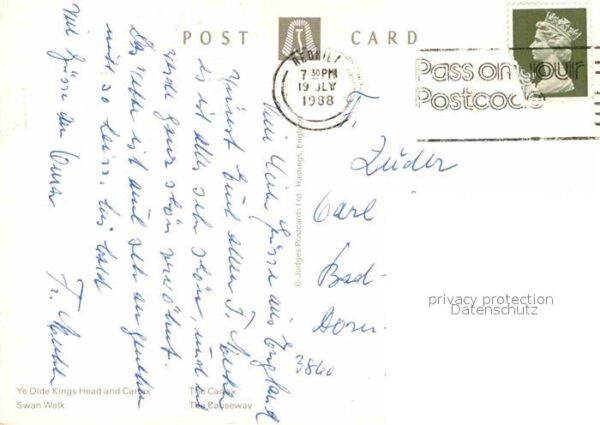 POST CARD
REDHILL
7 30PM
19 JLY
1988
Pass on your
Postcode
© Judges Postcards Ltd., Hastings, England
Viele liebe Grüsse aus England
wünscht Euch allen F.
es ist alles sehr schön, und
werde ganz schön verwöhnt.
Das Wetter ist auch sehr angenehm
nicht so heiss. bis bald
viele Grüsse an
Fr.
Carl
Bad-
3860
privacy protection
Datenschutz
Ye Olde Kings Head and Carfax
Swan Walk
The Carfax
The Causeway